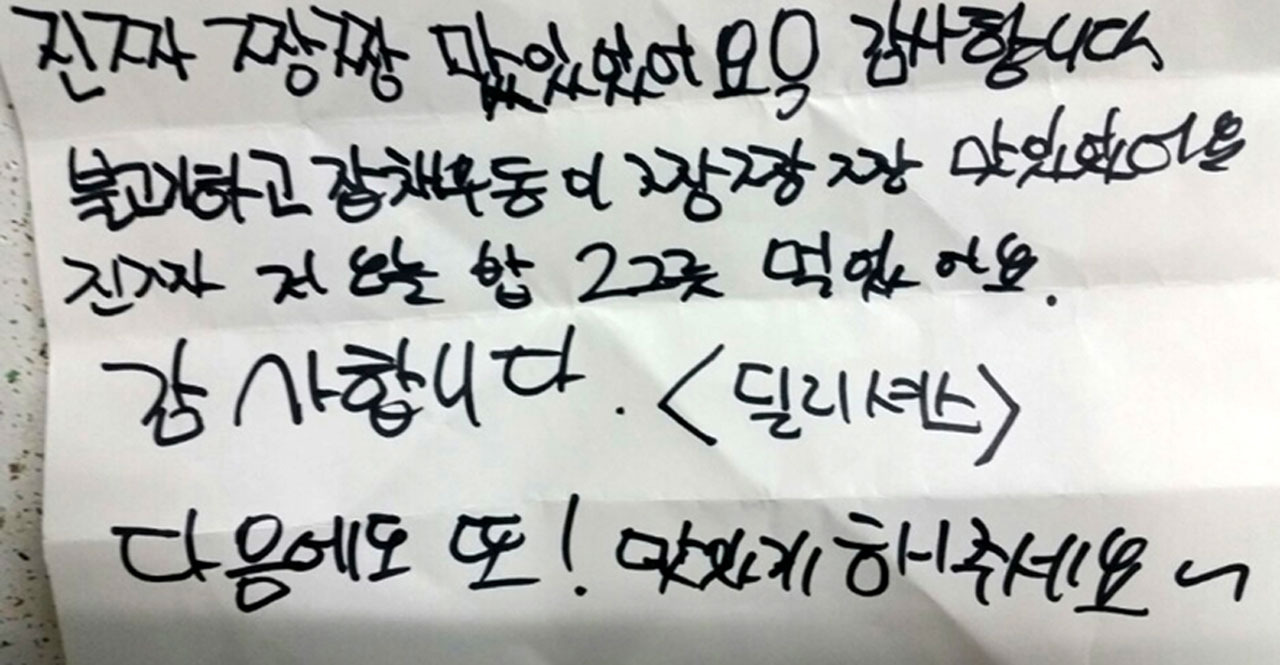 진짜 짱짱 맜있었어요용 감사합니다
불고기하고 잡채우동이 짱짱짱 맛있었어용
진짜 저 오늘 밥 2그릇 먹었어요.
감사합니다. <딜리셔스>
다음에도 또! 맛있게 해주세요~